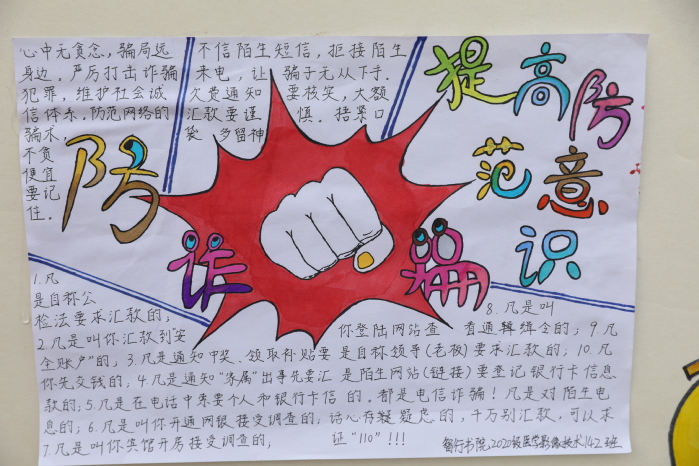 心中无贪念，骗局远
身边。严厉打击诈骗
犯罪，维护社会诚
信体系，防范网络的
骗术，
不贪
便宜
要记
住．
不信陌生短信，拒接陌生
来电，让骗子无从下手．
欠费通知要核笑，大额
汇款要谨慎．捂紧口
袋 多留神
提高防
范意
识
防
诈骗
1.凡
是自称公
检法要求汇款的；
2.凡是叫你汇款到"安
全账户"的；3.凡是通知中奖、领取补贴要
你先交钱的；4.凡是通知"家属"出事先要汇
款的；5.凡是在电话中索要个人和银行卡信
息的；6.凡是叫你开通网银接受调查的；
7.凡是叫你宾馆开房接受调查的；
8.凡是叫
你登陆网站查看通缉令的；9.凡
是自称领导(老板)要求汇款的；10.凡
是陌生网站(链接)要登记银行卡信息
的．都是电信诈骗！凡是对陌生电
话心存疑虑的，千万别汇款，可以求
证"110"!!!
智行书院，2020级医学影像技术142班